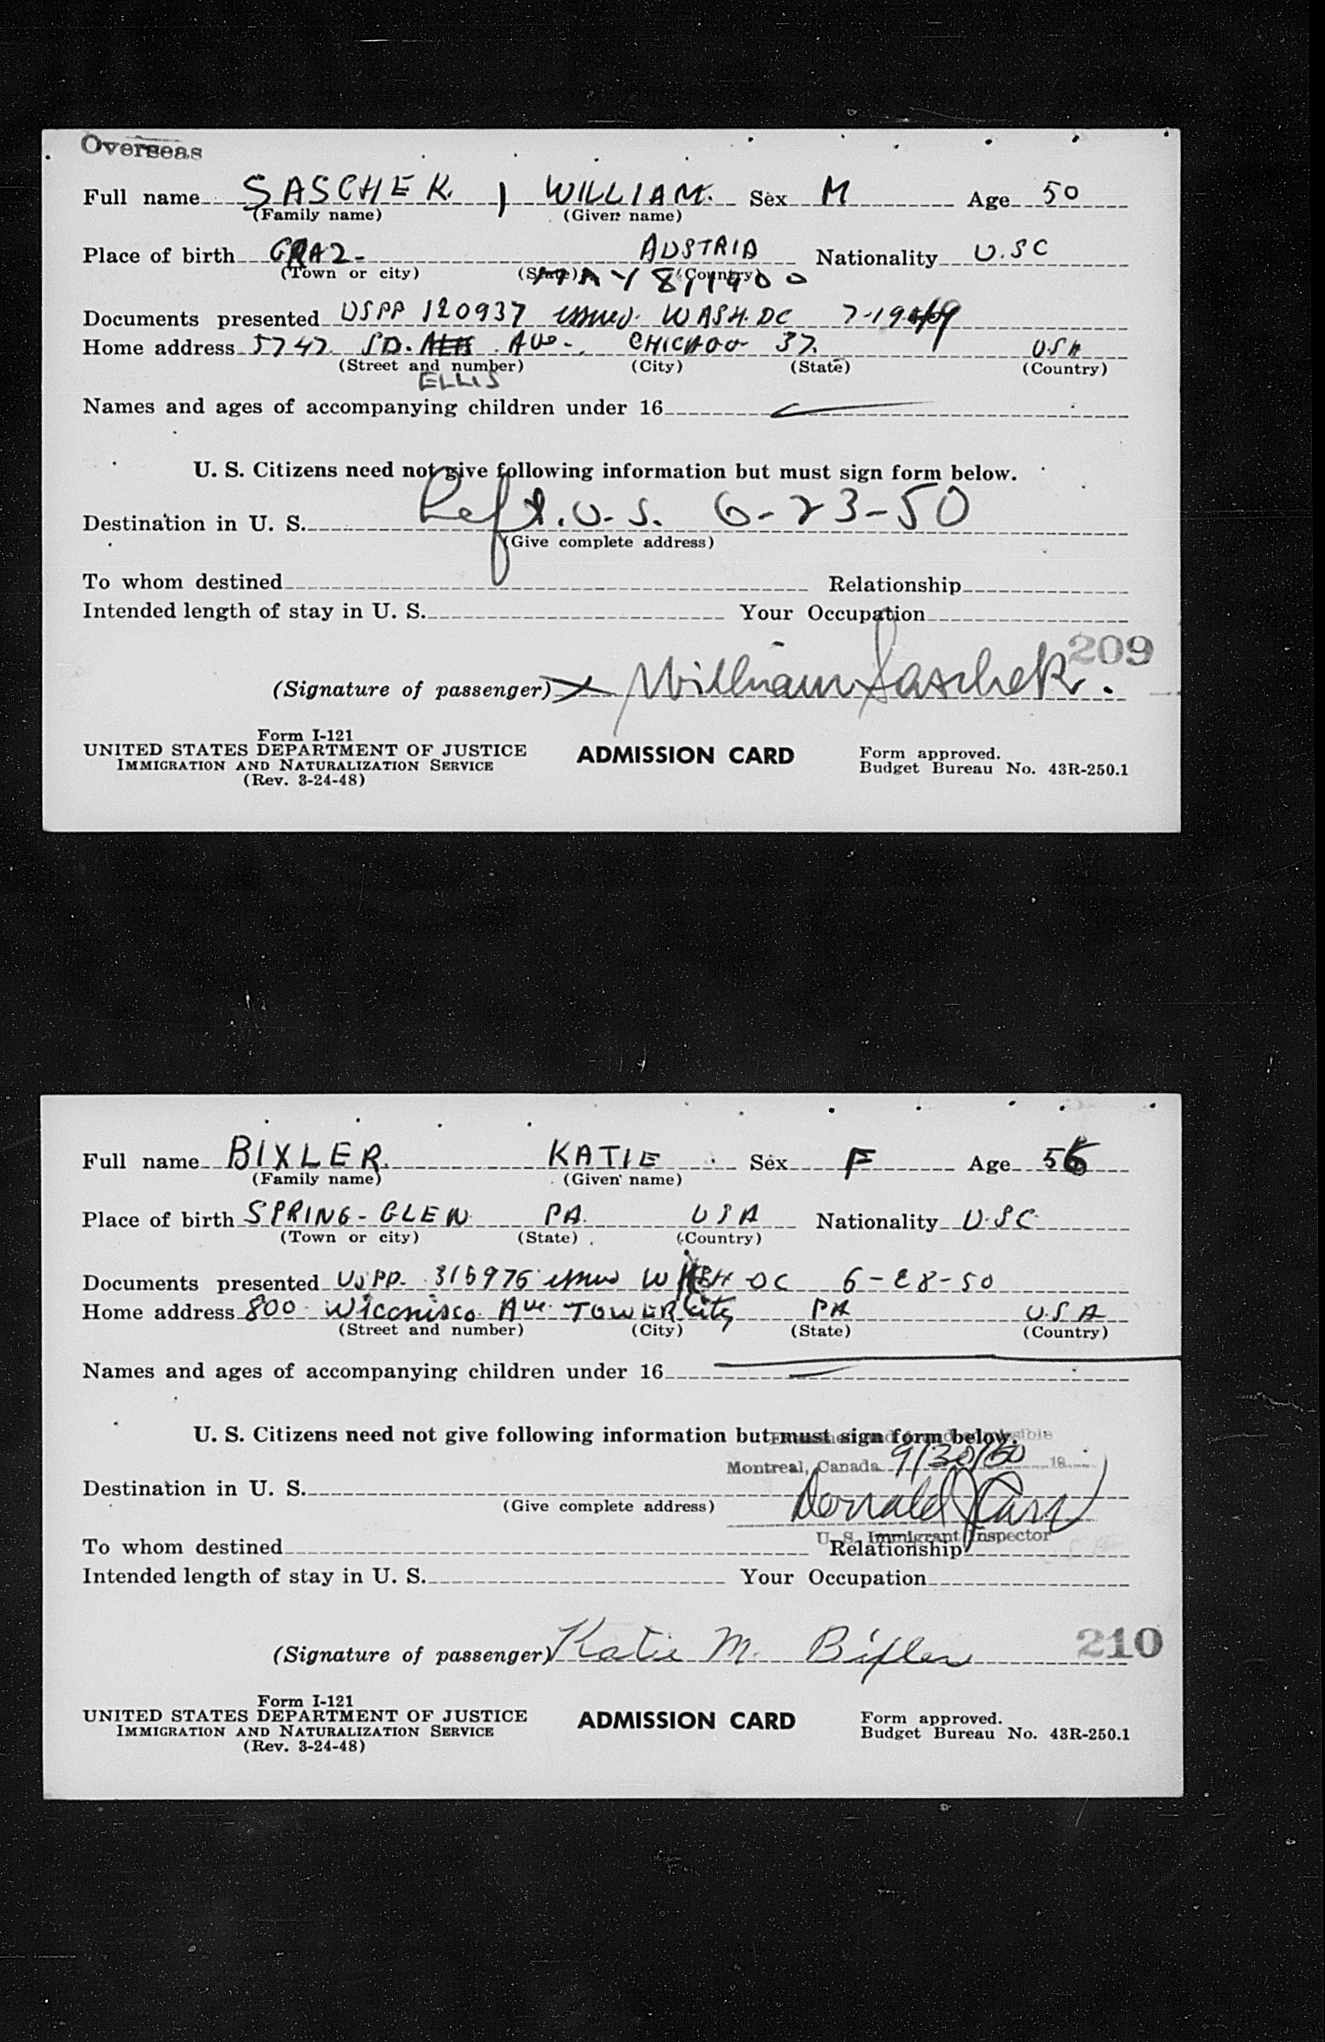 Overseas
Full name SASCHEK, WILLIAM. Sex M Age 50
(Family name) (Given name)
Place of birth GRAZ- AUSTRIA Nationality U.SC
(Town or city) (State) (Country)
MAY 8, 1900
Documents presented USPP 120937 issued WASH. DC 7-19-49
Home address 5747 SO. AVE. CHICAGO 37. USA
(Street and number) (City) (State) (Country)
ELLIS
Names and ages of accompanying children under 16
U. S. Citizens need not give following information but must sign form below.
Destination in U. S. Left U.S. 6-23-50
(Give complete address)
To whom destined Relationship
Intended length of stay in U. S. Your Occupation
209
(Signature of passenger) X William Saschek.
Form I-121
UNITED STATES DEPARTMENT OF JUSTICE ADMISSION CARD Form approved.
IMMIGRATION AND NATURALIZATION SERVICE Budget Bureau No. 43R-250.1
(Rev. 3-24-48)
Full name BIXLER. KATIE Sex F Age 56
(Family name) (Given name)
Place of birth SPRING-GLEN PA. USA Nationality U.SC
(Town or city) (State) (Country)
Documents presented USPP. 315975 issued WASH DC 6-28-50
Home address 800 Wiconisco Ave TOWER City PA USA
(Street and number) (City) (State) (Country)
Names and ages of accompanying children under 16
U. S. Citizens need not give following information but must sign form below.
Montreal, Canada 9/30/50 19
Destination in U. S. Donald J Carr
(Give complete address)
U. S. Immigrant Inspector
To whom destined Relationship
Intended length of stay in U. S. Your Occupation
(Signature of passenger) Katie M. Bixler 210
Form I-121
UNITED STATES DEPARTMENT OF JUSTICE ADMISSION CARD Form approved.
IMMIGRATION AND NATURALIZATION SERVICE Budget Bureau No. 43R-250.1
(Rev. 3-24-48)